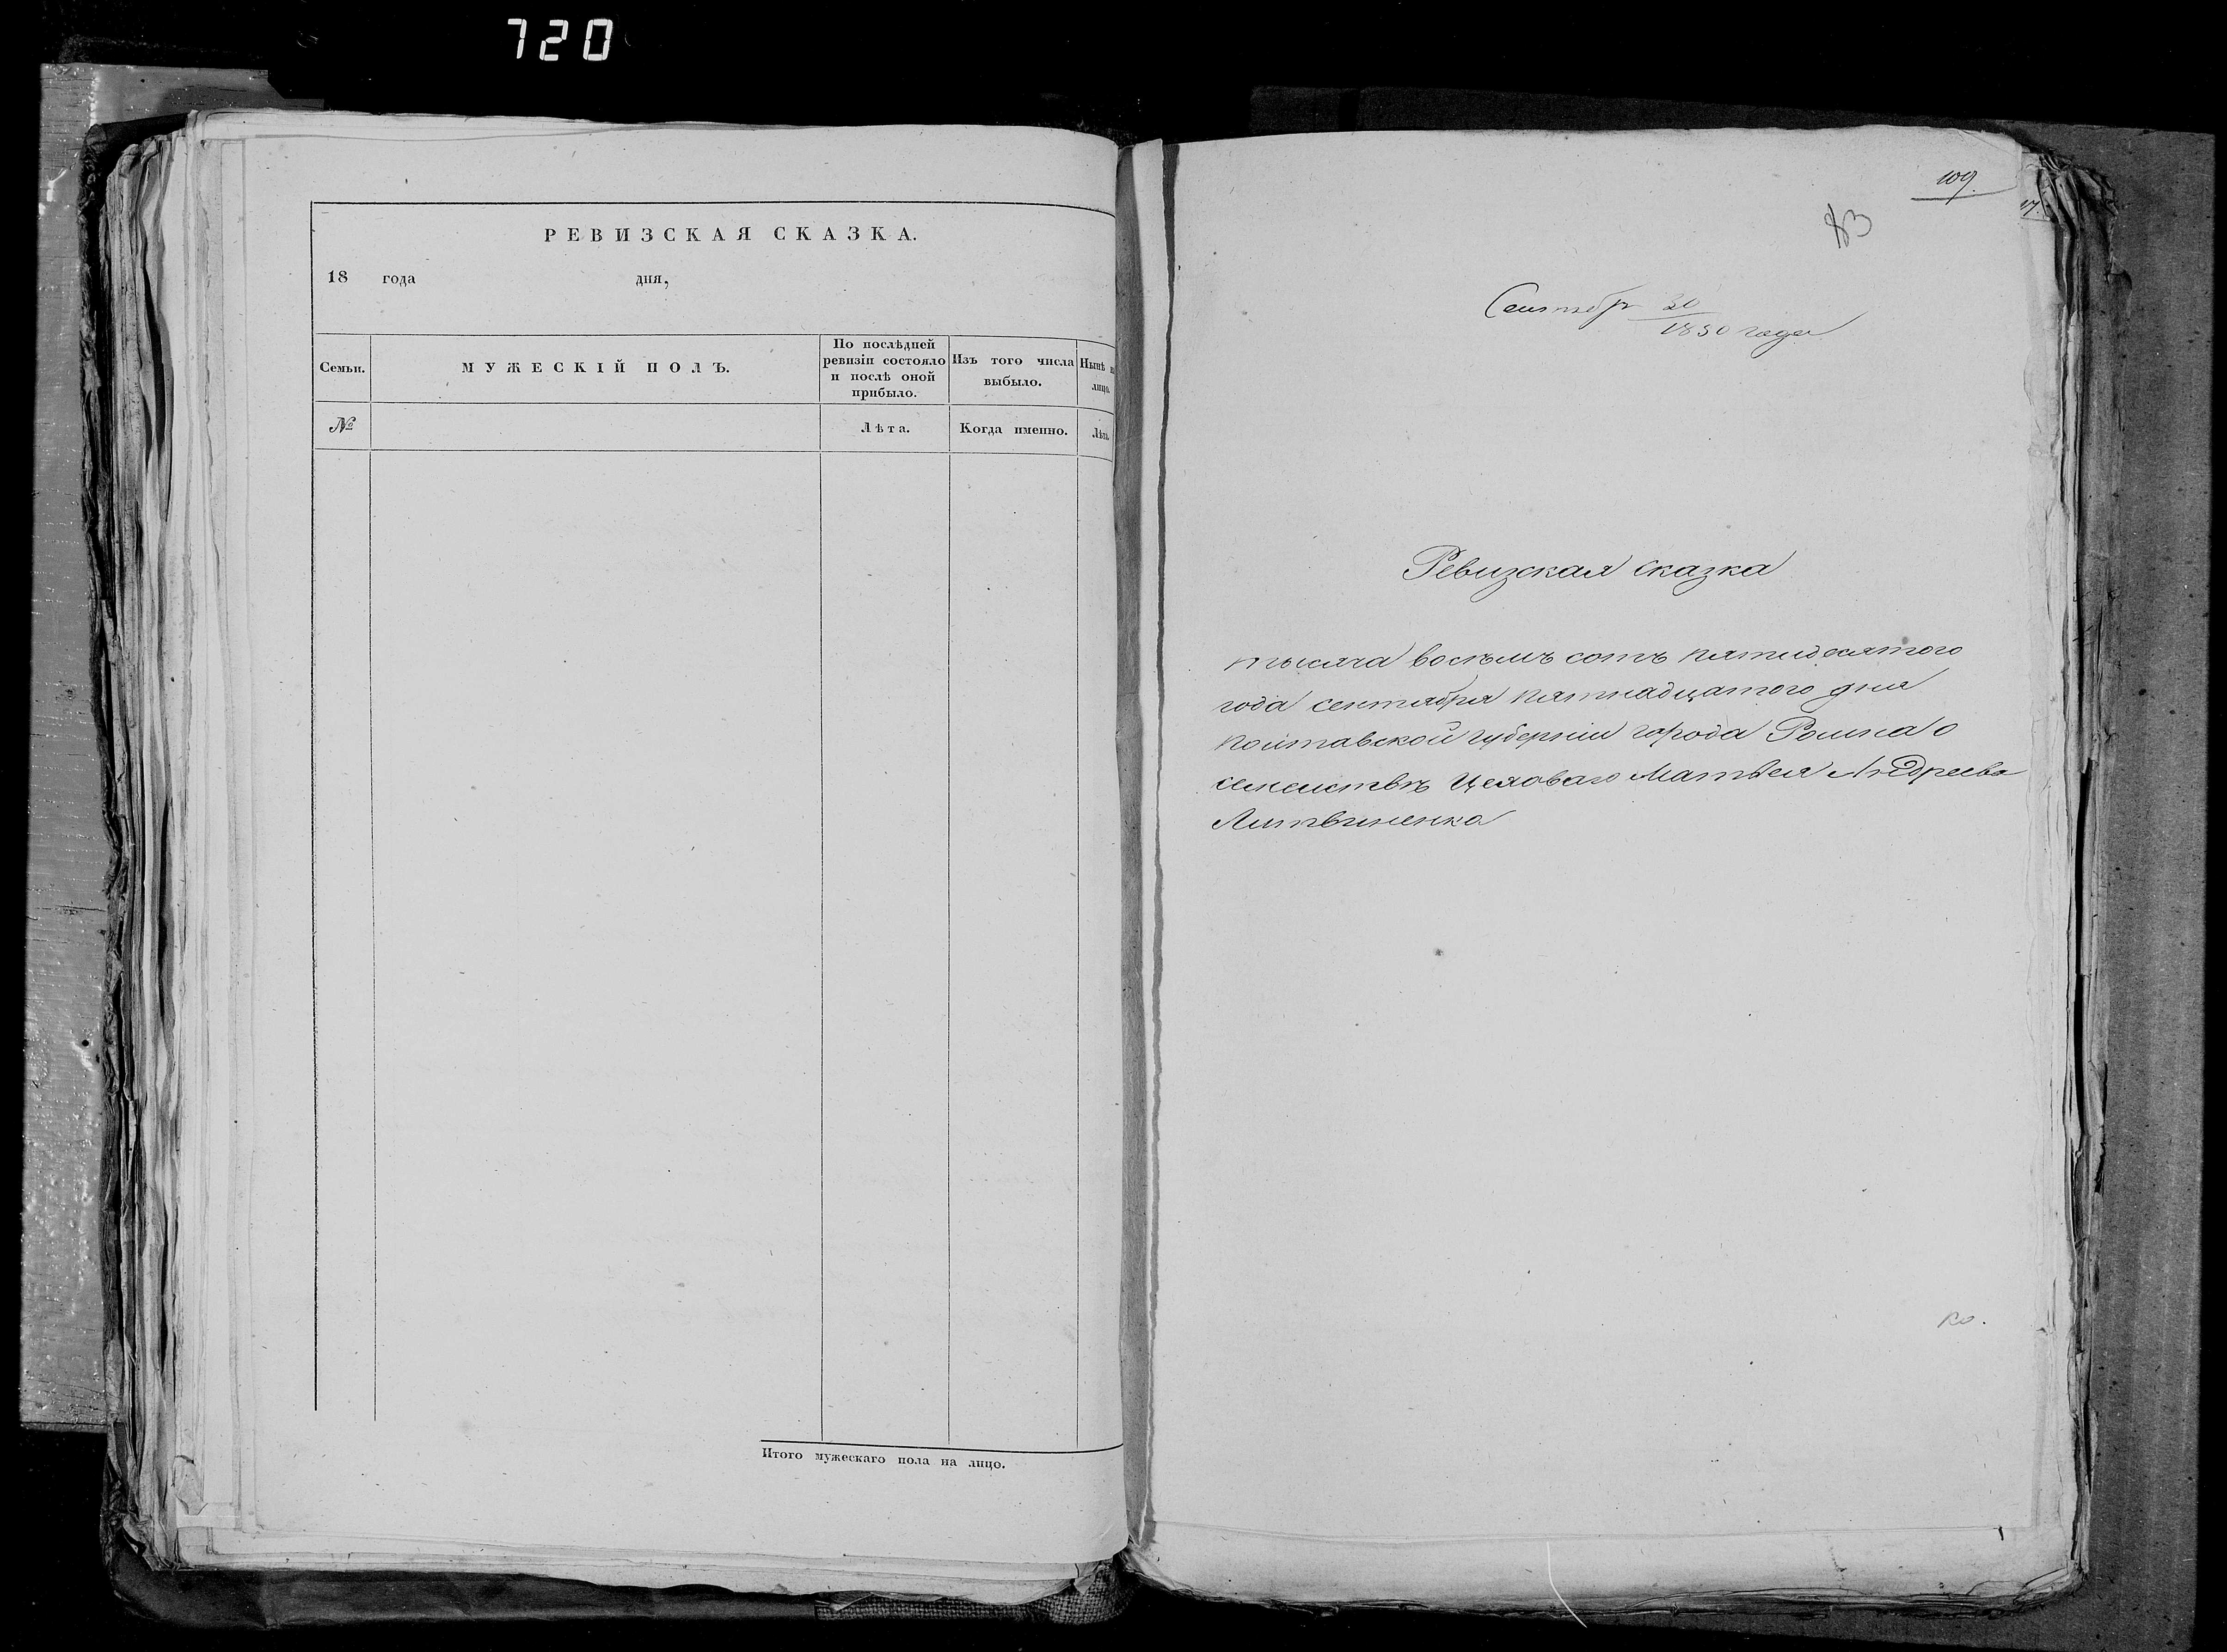 720
РЕВИЗСКАЯ СКАЗКА.
18 года дня,
Семьи.
МУЖЕСКІЙ ПОЛЪ.
По послѣдней
ревизіи состояло
и послѣ оной
прибыло.
Изъ того числа
выбыло.
Нынѣ н
лицо.
№
Лѣта.
Когда именно.
Лѣта.
Итого мужескаго пола на лицо.
109.
17.
83
Сентябр 30
1850 года
Ревизская сказка
тысяча восемь сотъ пятидесятого
года сентября пятнадцатого дня
Полтавской губерніи города Ромна о
семействѣ Цеховаго Матвея Андреева
Литвиненка